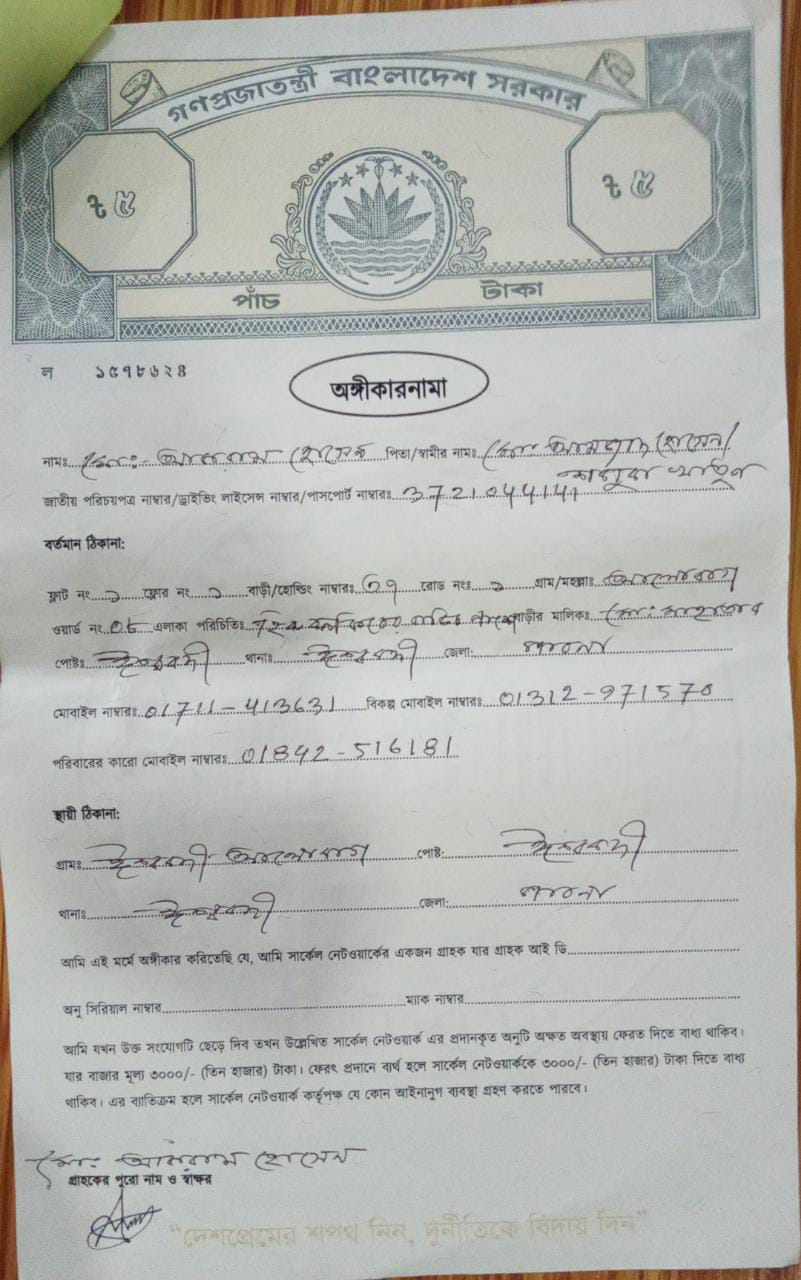 গণপ্রজাতন্ত্রী বাংলাদেশ সরকার
৳ ৫ ৳ ৫
পাঁচ টাকা
ল ১৫৭৮৬২৪
অঙ্গীকারনামা
নামঃ মোঃ- হোসেন পিতা/স্বামীর নামঃ মোঃ হোসেন/
খাতুন
জাতীয় পরিচয়পত্র নাম্বার/ড্রাইভিং লাইসেন্স নাম্বার/পাসপোর্ট নাম্বারঃ
বর্তমান ঠিকানা:
ফ্লাট নং ফ্লোর নং বাড়ী/হোল্ডিং নাম্বারঃ ৩৭ রোড নংঃ গ্রাম/মহল্লাঃ
ওয়ার্ড নং ০৮ এলাকা পরিচিতিঃ বাড়ীর মালিকঃ মোঃ
পোষ্টঃ ঈশ্বরদী থানাঃ ঈশ্বরদী জেলা: পাবনা
মোবাইল নাম্বারঃ 01711-413631 বিকল্প মোবাইল নাম্বারঃ 01312-971570
পরিবারের কারো মোবাইল নাম্বারঃ 01842-516181
স্থায়ী ঠিকানা:
গ্রামঃ ঈশ্বরদী পোষ্ট: ঈশ্বরদী
থানাঃ ঈশ্বরদী জেলা: পাবনা
আমি এই মর্মে অঙ্গীকার করিতেছি যে, আমি সার্কেল নেটওয়ার্কের একজন গ্রাহক যার গ্রাহক আই ডি
অনু সিরিয়াল নাম্বার ম্যাক নাম্বার
আমি যখন উক্ত সংযোগটি ছেড়ে দিব তখন উল্লেখিত সার্কেল নেটওয়ার্ক এর প্রদানকৃত অনুটি অক্ষত অবস্থায় ফেরত দিতে বাধ্য থাকিব।
যার বাজার মূল্য ৩০০০/- (তিন হাজার) টাকা। ফেরৎ প্রদানে ব্যর্থ হলে সার্কেল নেটওয়ার্ককে ৩০০০/- (তিন হাজার) টাকা দিতে বাধ্য
থাকিব। এর ব্যতিক্রম হলে সার্কেল নেটওয়ার্ক কর্তৃপক্ষ যে কোন আইনানুগ ব্যবস্থা গ্রহণ করতে পারবে।
মোঃ হোসেন
গ্রাহকের পুরো নাম ও স্বাক্ষর
“দেশপ্রেমের শপথ নিন, দুর্নীতিকে বিদায় দিন”